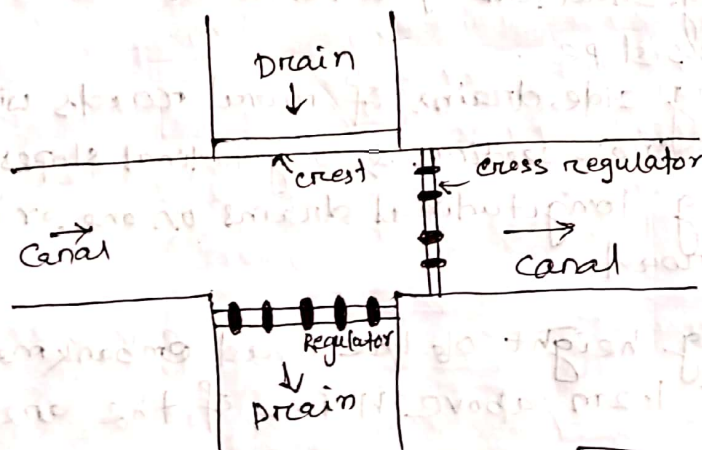 Drain
crest
cross regulator
Canal
canal
Regulator
Drain